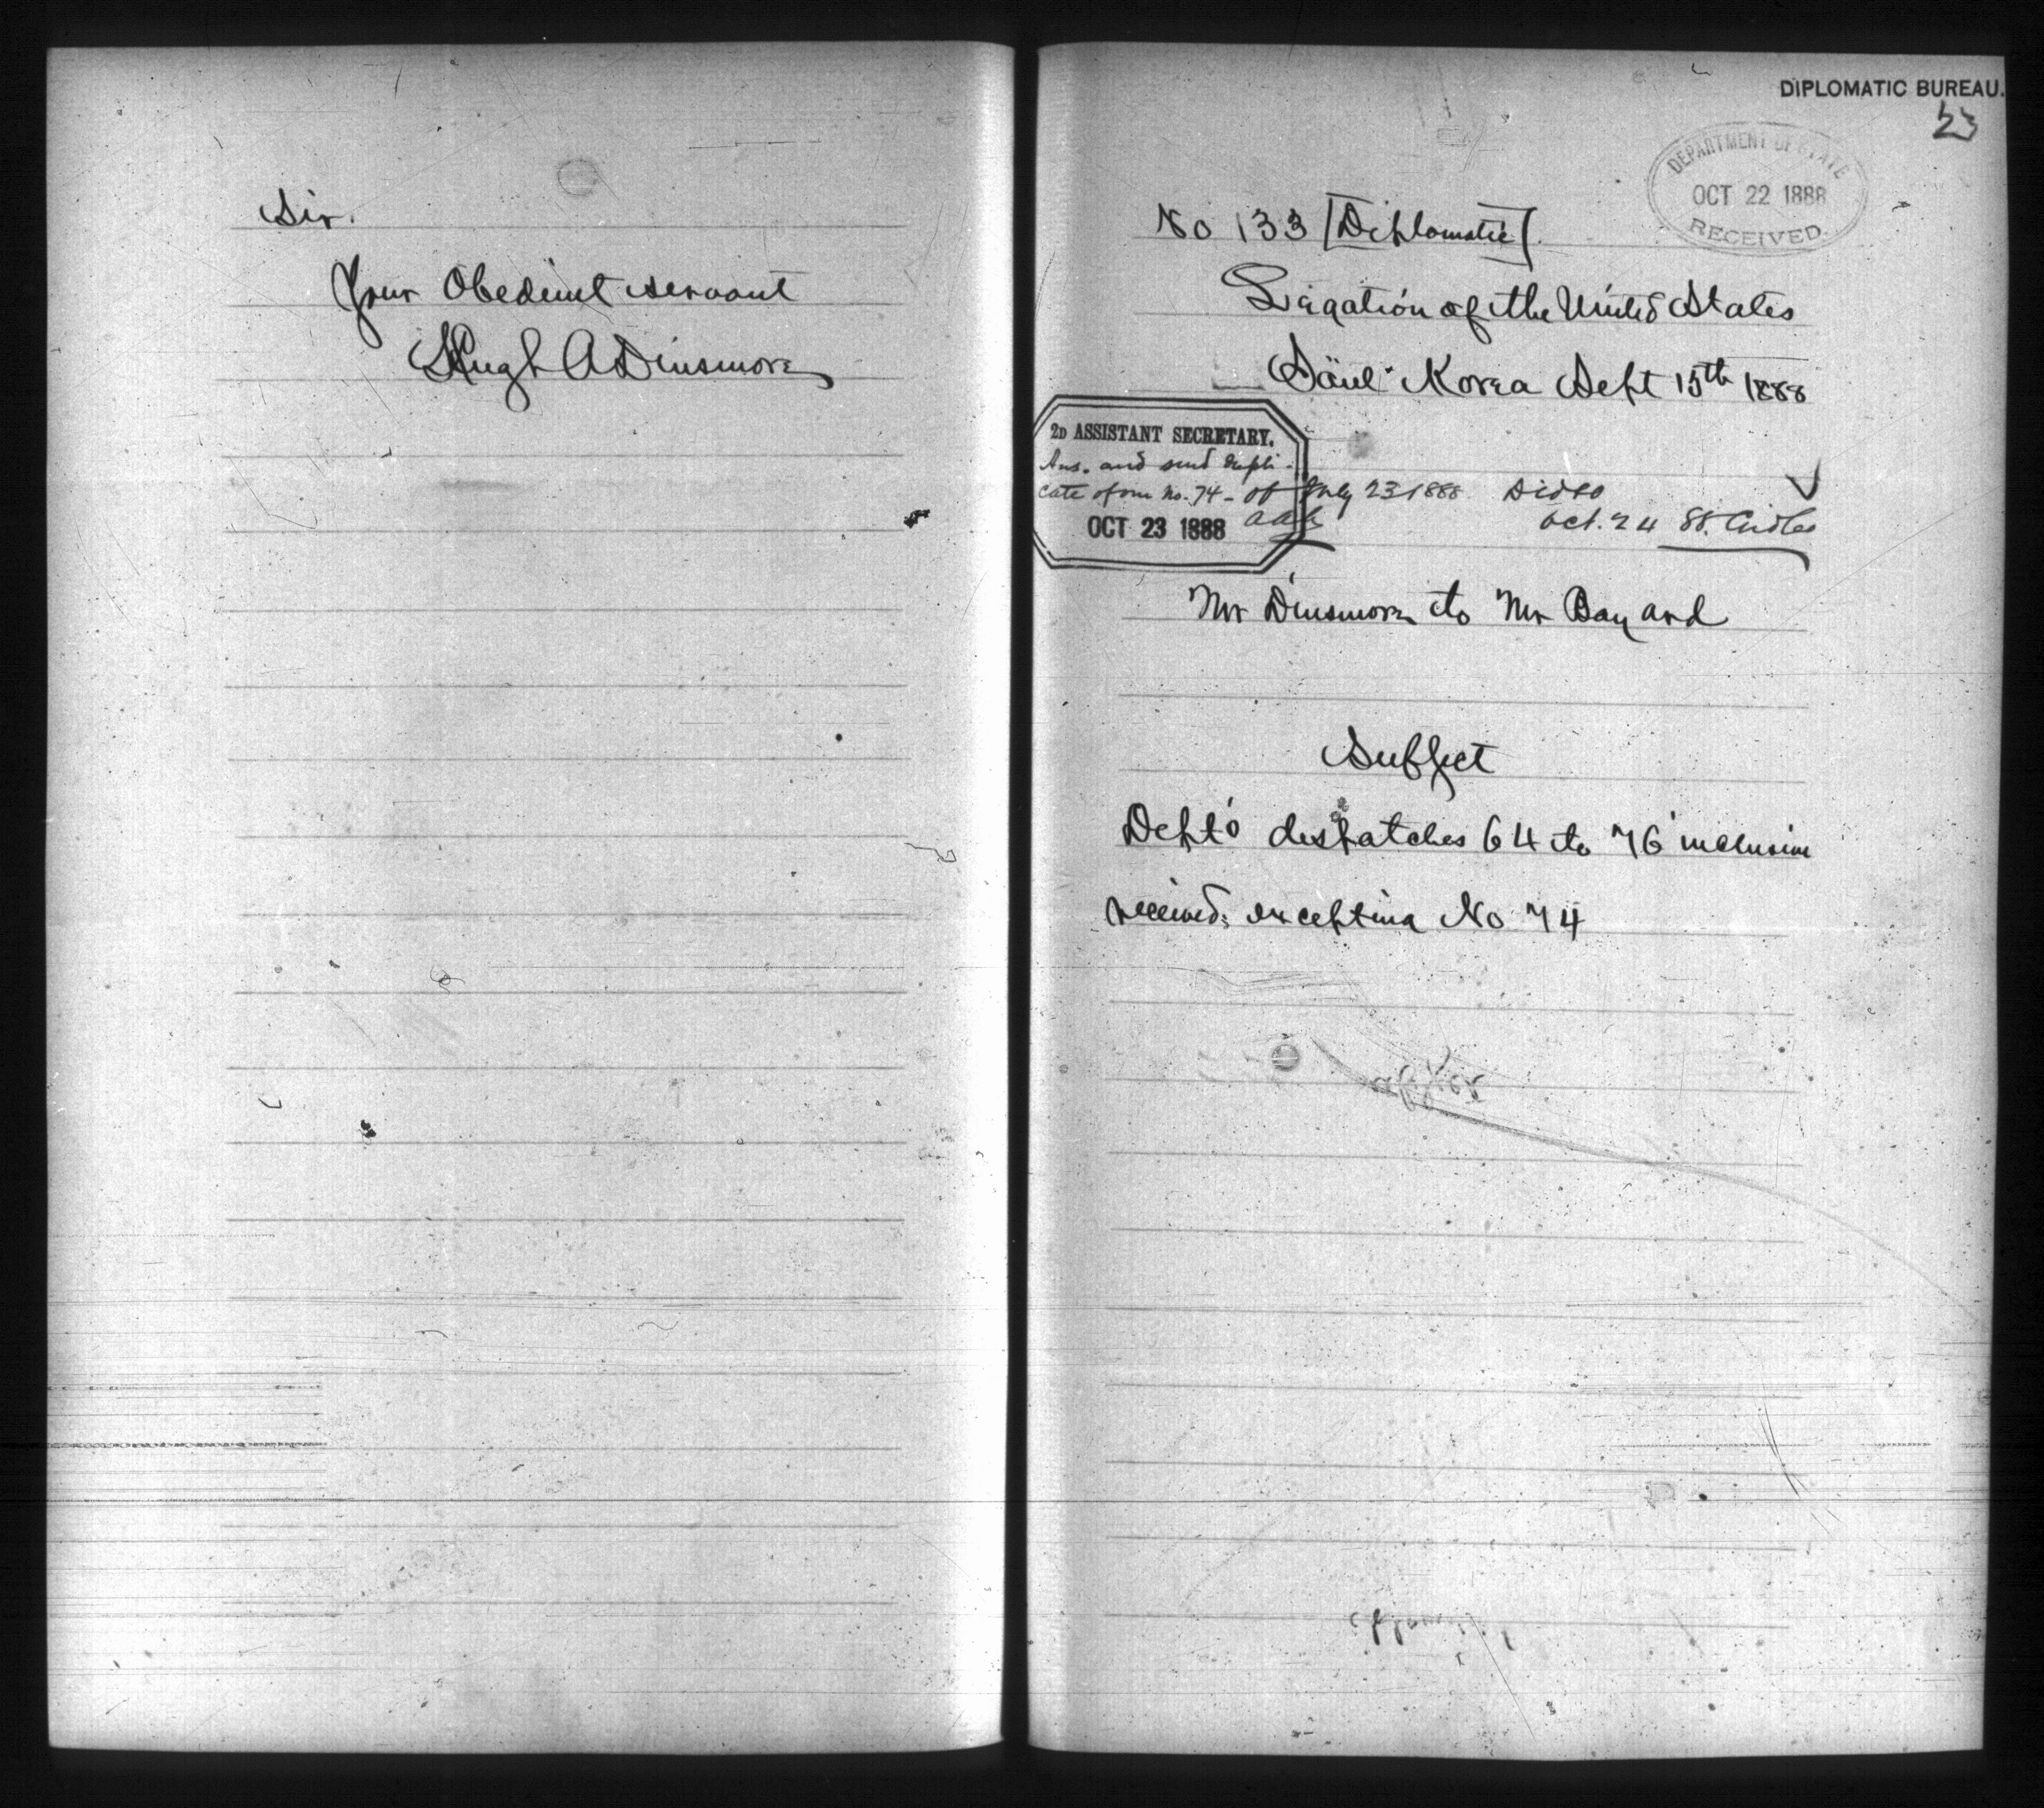 Sir.
Your Obedient servant
Hugh A Dinsmore
DIPLOMATIC BUREAU.
23
DEPARTMENT OF STATE
OCT 22 1888
RECEIVED
No 133 [Diplomatic]
Legation of the United States
Söul Korea Sept 15th 1888
2D ASSISTANT SECRETARY.
Ans. and send dupli-
cate of our No. 74 - of July 23 1888. Did so
OCT 23 1888 aaa Oct. 24 88.
Mr Dinsmore to Mr Bayard
Subject
Dept's despatches 64 to 76 inclusive
received; excepting No 74